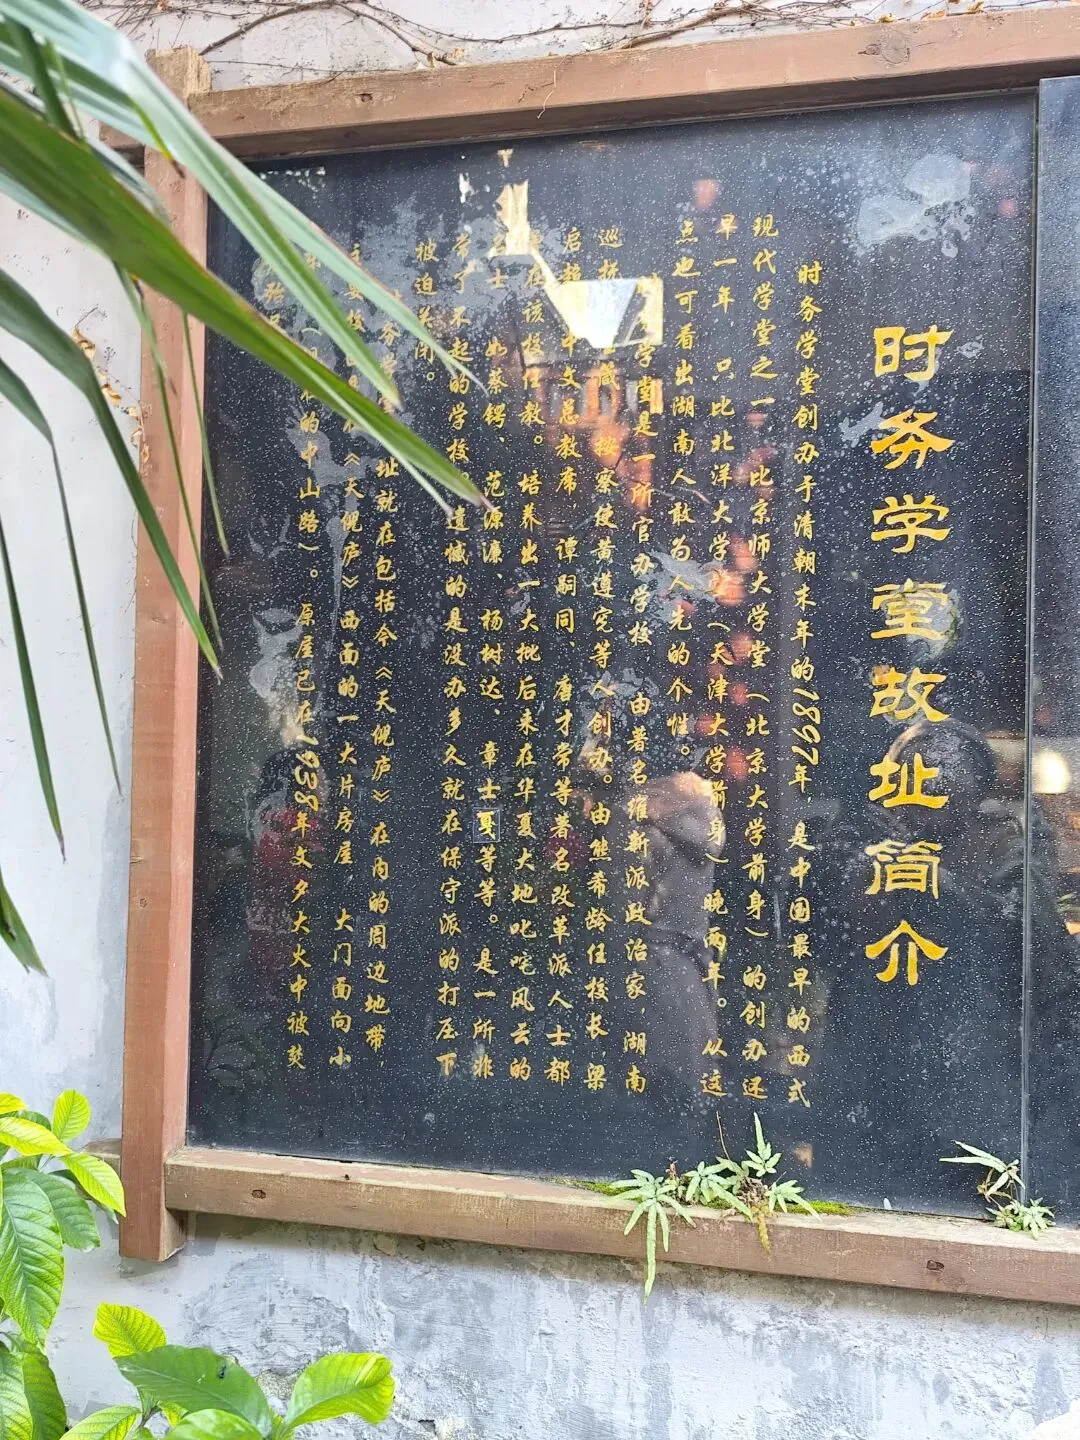 时务学堂故址简介
时务学堂创办于清朝末年的1897年，是中国最早的西式
现代学堂之一，比京师大学堂（北京大学前身）的创办还
早一年，只比北洋大学堂（天津大学前身）晚两年。从这
点也可看出湖南人敢为人先的个性。
学堂是一所官办学校，由著名维新派政治家，湖南
巡 按察使黄遵宪等人创办。由熊希龄任校长，梁
启超 中文总教席，谭嗣同、唐才常等著名改革派人士都
在该校任教。培养出一大批后来在华夏大地叱咤风云的
士 如蔡锷、范源濂、杨树达、章士夏等等。是一所非
常了不起的学校。遗憾的是没办多久就在保守派的打压下
被迫关闭。
务学 址就在包括今《天倪庐》在内的周边地带，
主要校 《天倪庐》西面的一大片房屋，大门面向小
的中山路）。原屋已在1938年文夕大火中被焚